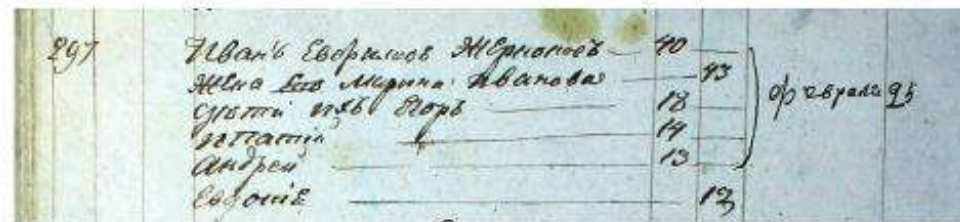 297 Иванъ Евфимовъ Жерноковъ 40
Жена Его Марина Иванова 43
дѣти ихъ Егоръ 18
Ипатій 14
Андрей 13
Евдоків 12
февраля 25